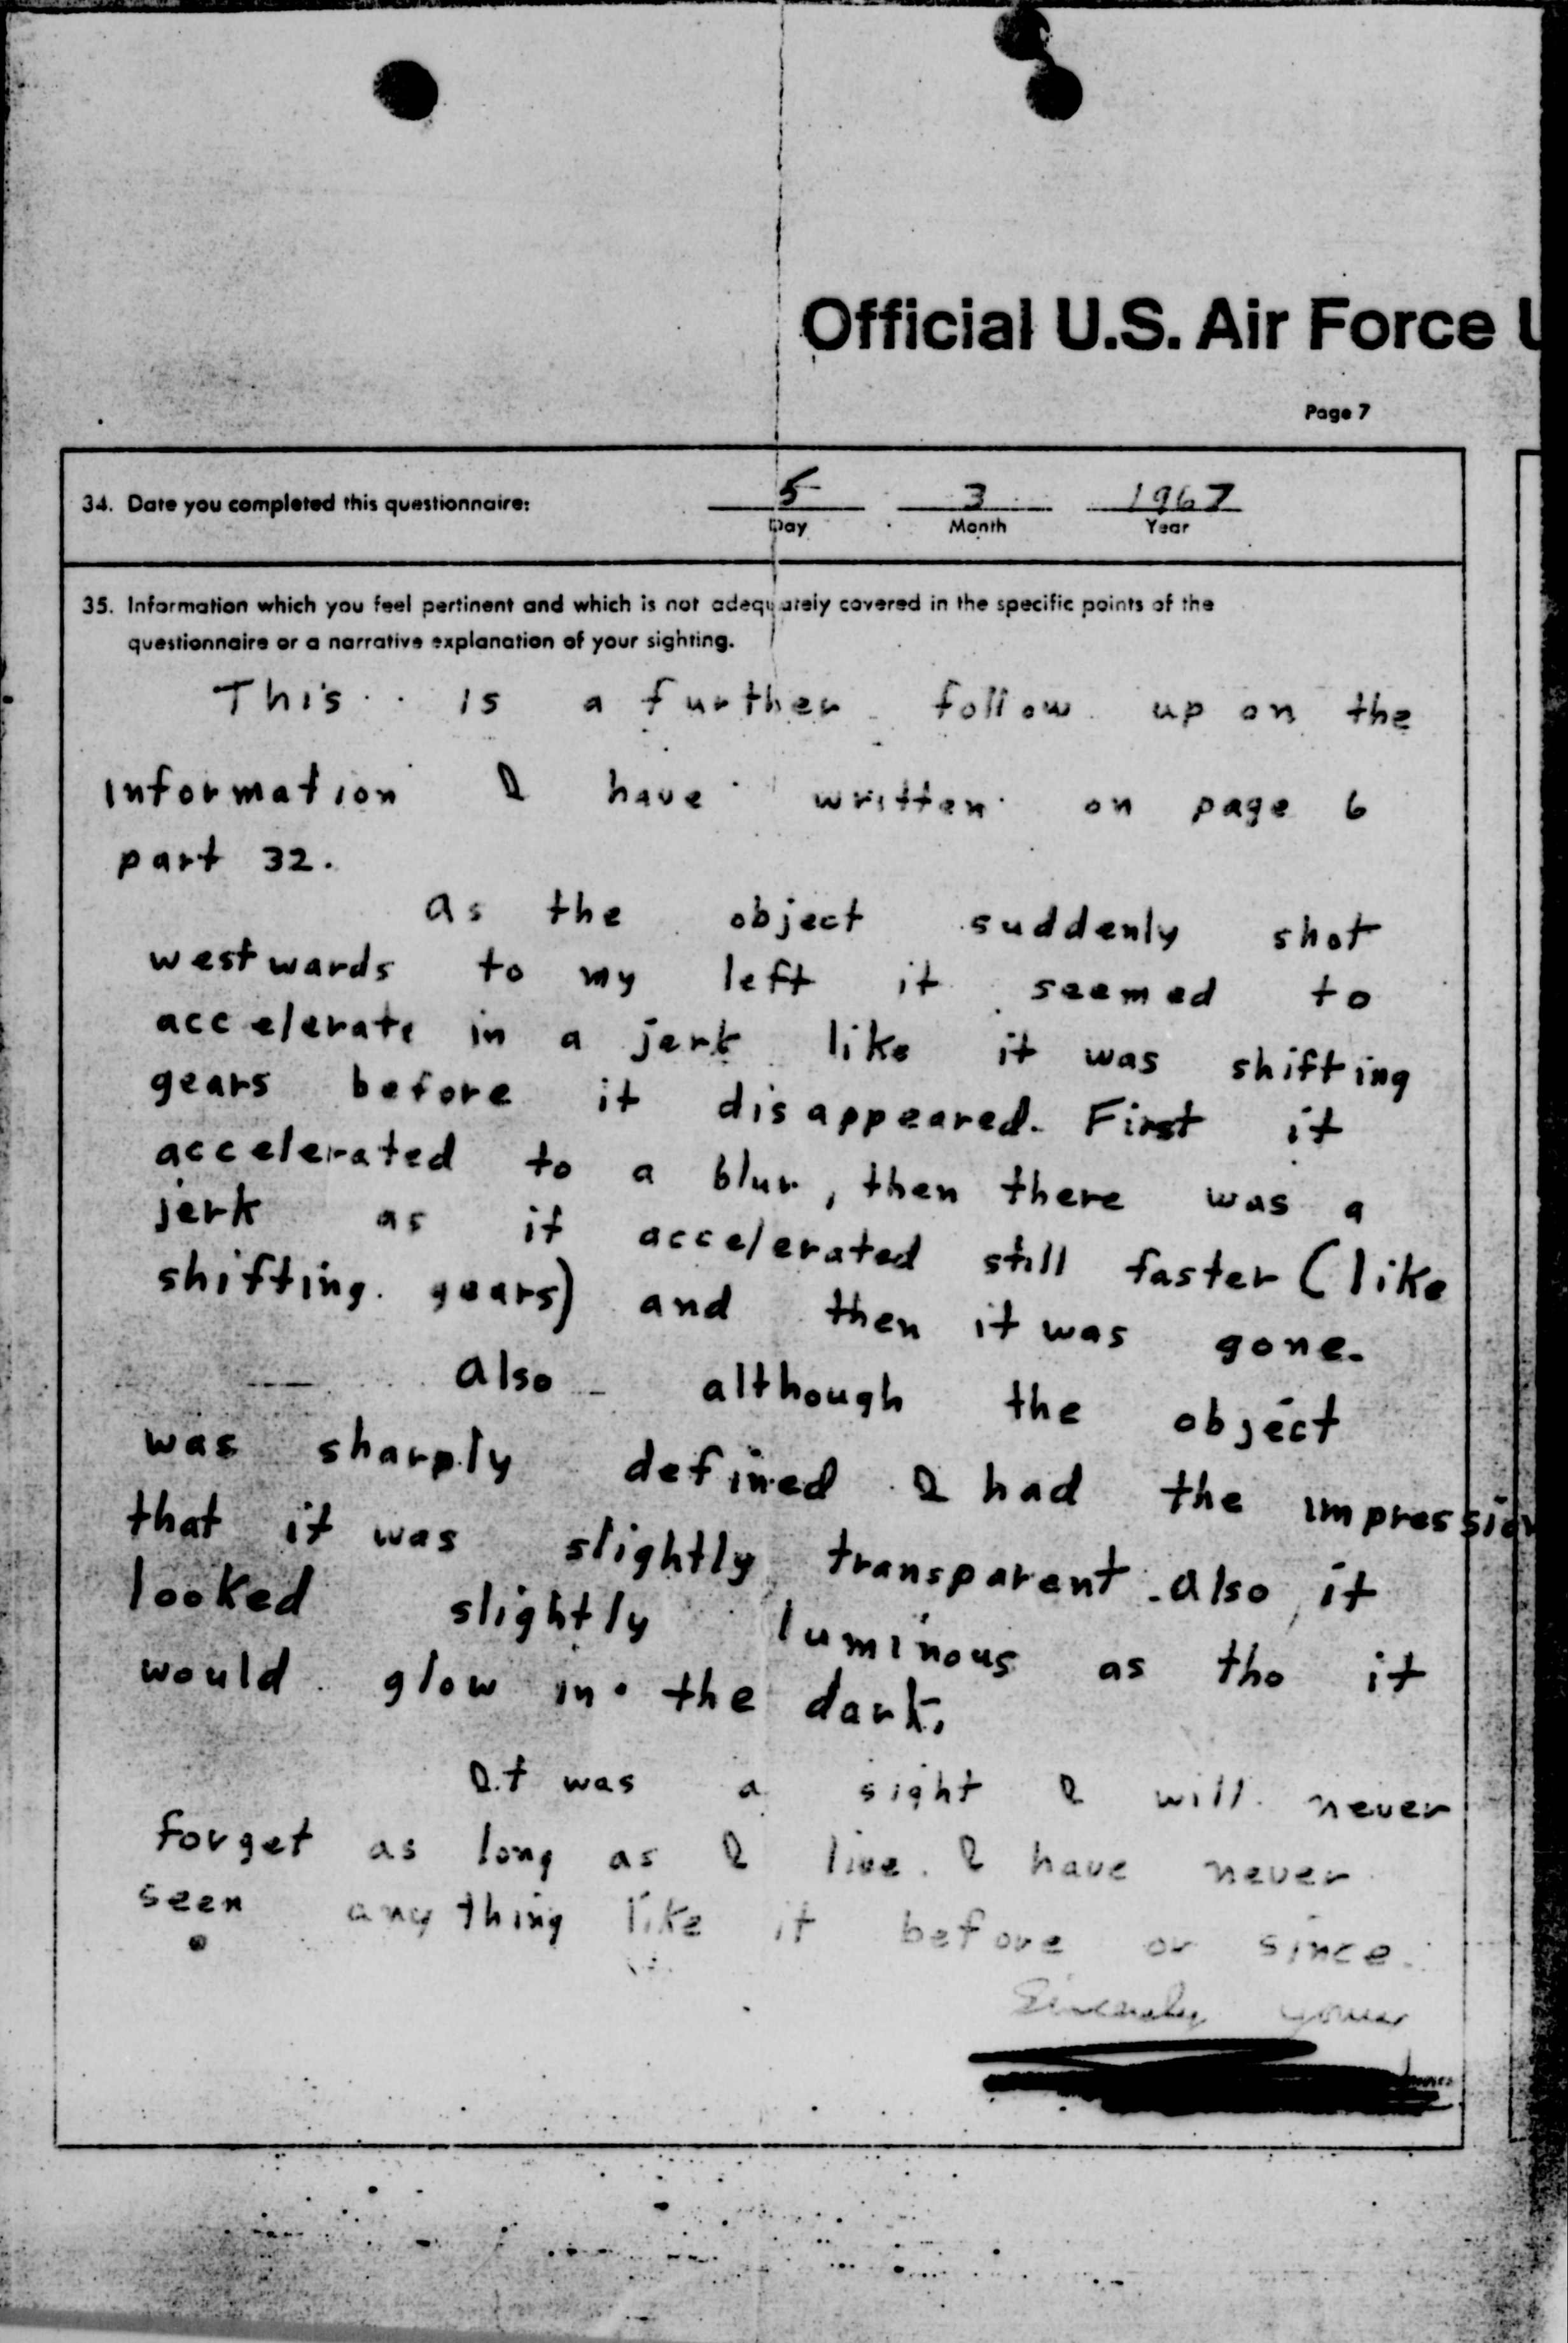 Official U.S. Air Force U
Page 7
34. Date you completed this questionnaire: 5 3 1967
Day Month Year
35. Information which you feel pertinent and which is not adequately covered in the specific points of the
questionnaire or a narrative explanation of your sighting.
This is a further follow up on the
information I have written on page 6
part 32.
as the object suddenly shot
westwards to my left it seemed to
accelerate in a jerk like it was shifting
gears before it disappeared. First it
accelerated to a blur, then there was a
jerk as it accelerated still faster (like
shifting gears) and then it was gone.
also although the object
was sharply defined I had the impression
that it was slightly transparent. also it
looked slightly luminous as tho it
would glow in the dark.
It was a sight I will never
forget as long as I live. I have never
seen anything like it before or since.
Sincerely yours